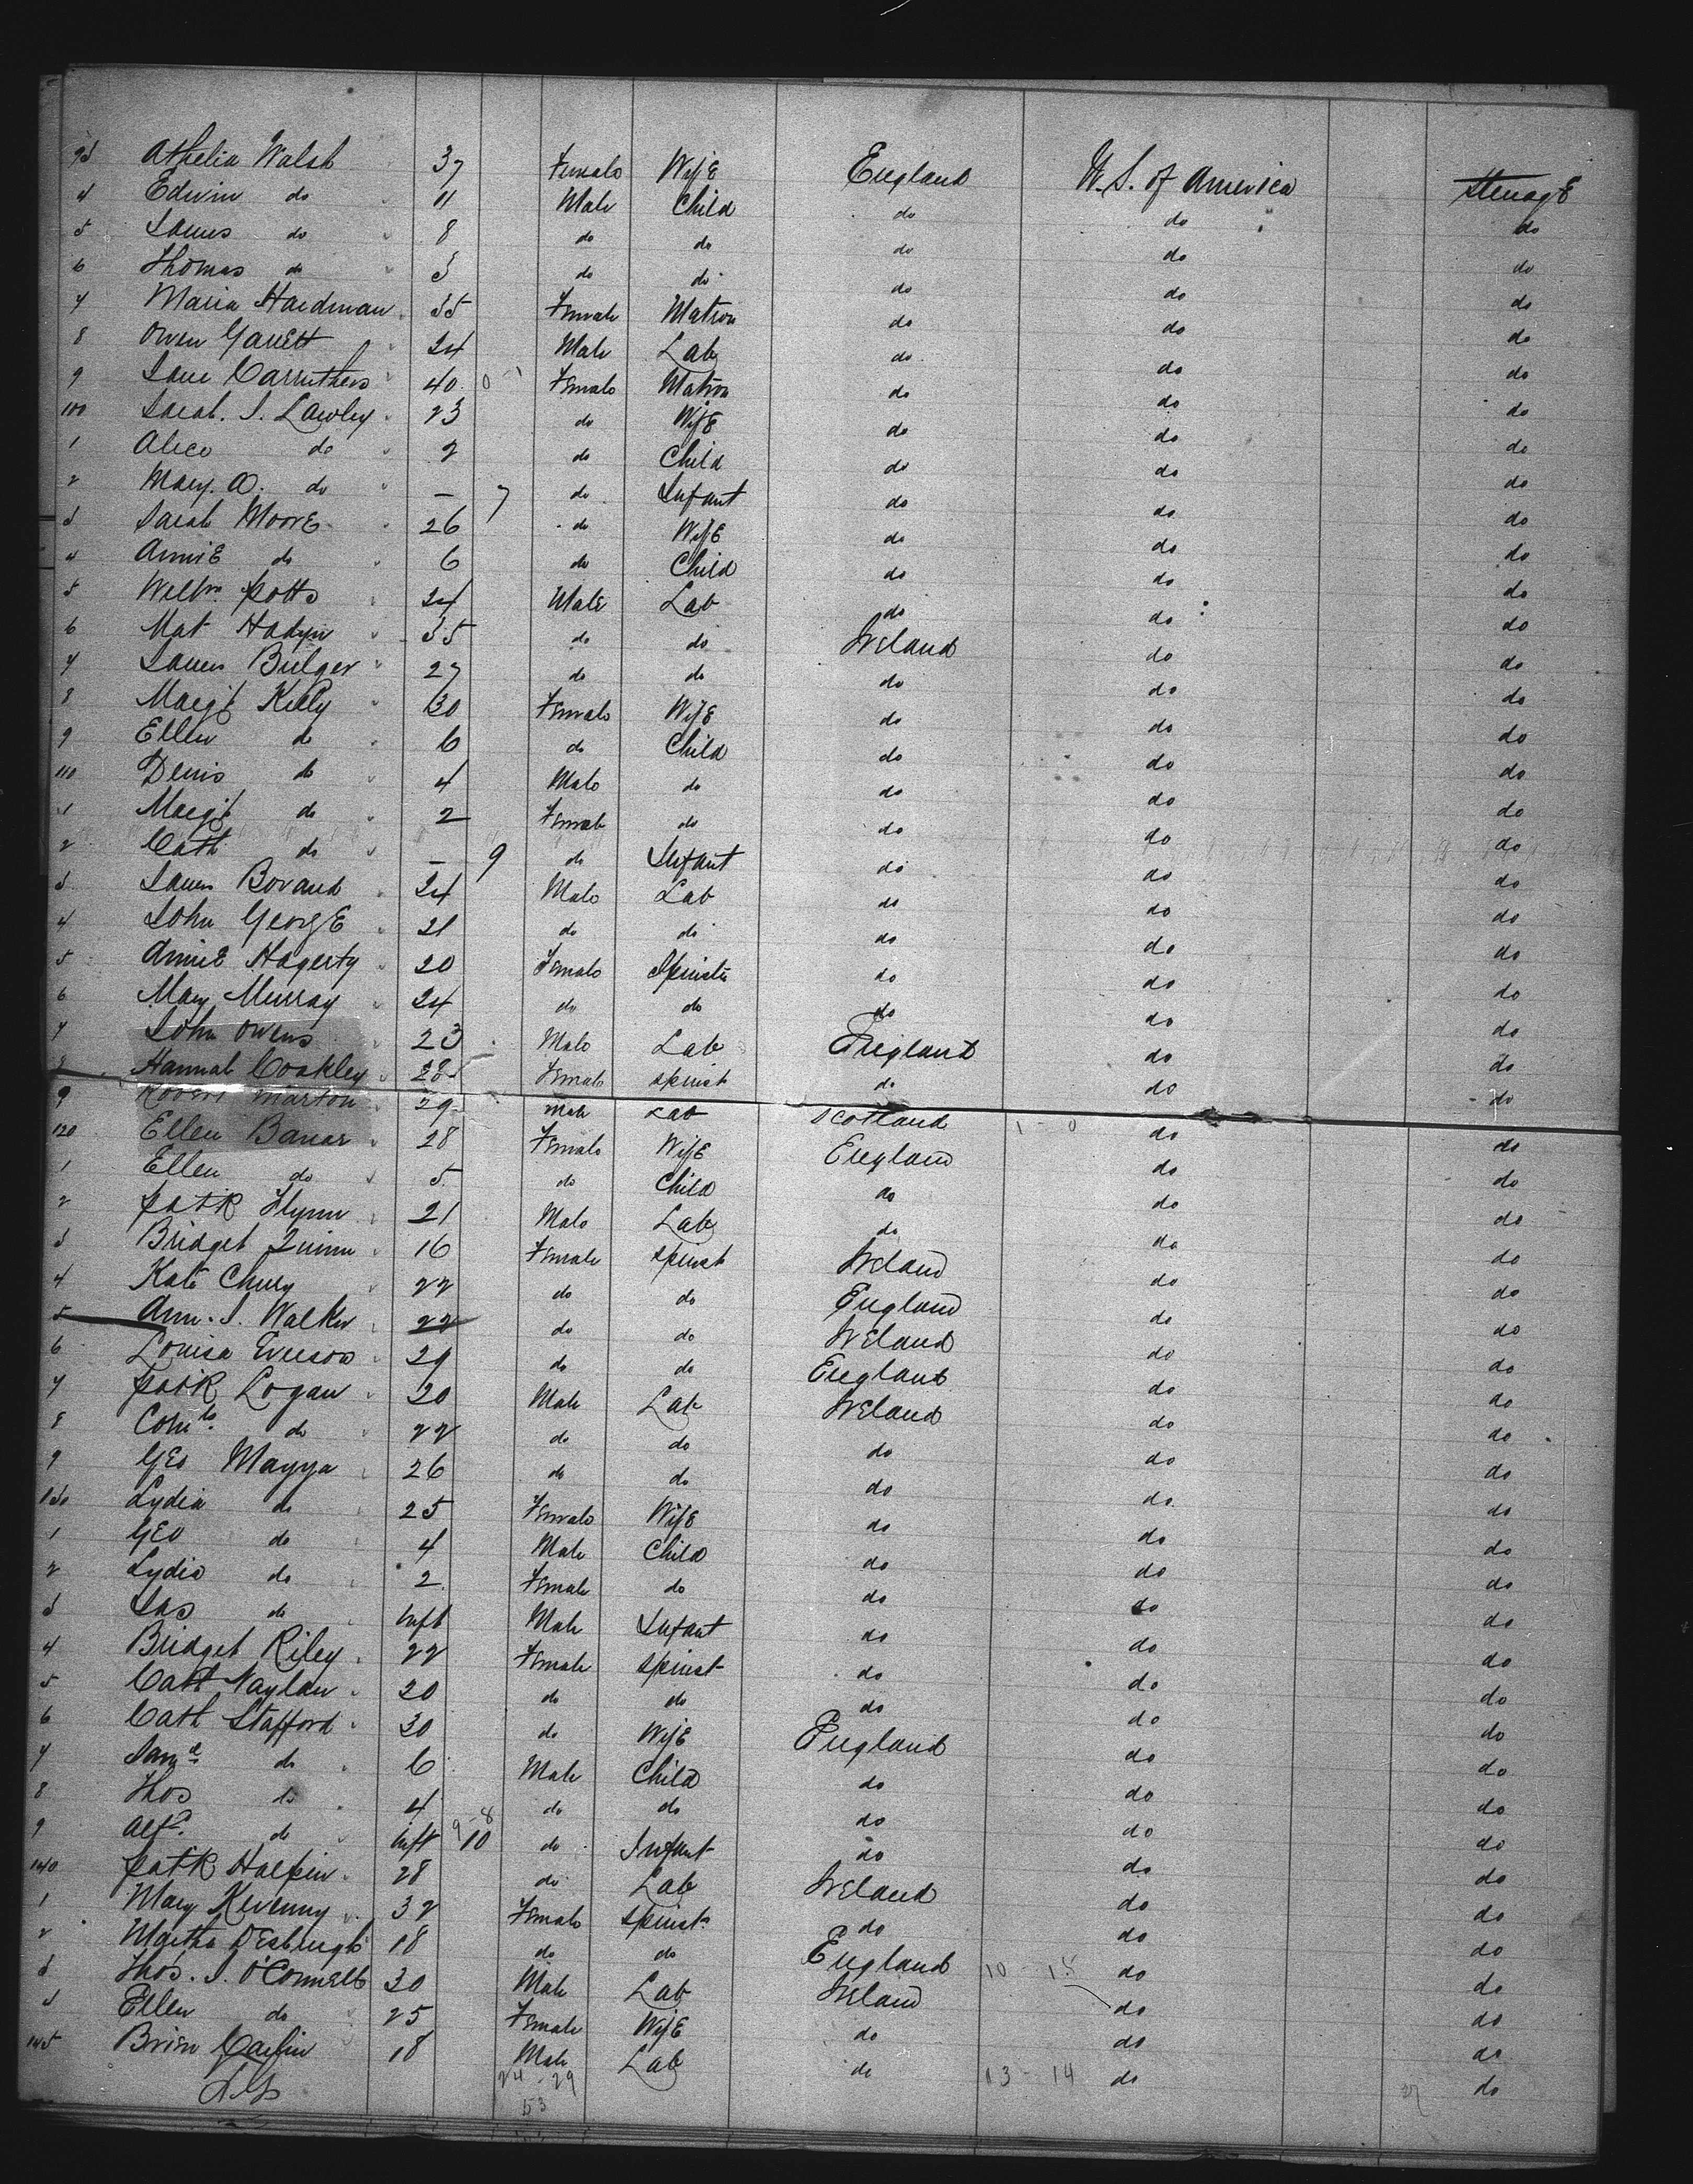 93 Athelia Walsh 37 Female Wife England U.S. of America Steerage
4 Edwin do 11 Male Child do do do
5 James do 8 do do do do do
6 Thomas do 3 do do do do do
7 Maria Hardman 35 Female Matron do do do
8 Owen Garrett 24 Male Lab do do do
9 Jane Carruthers 40 0 - 1 Female Matron do do do
100 Sarah. J. Lawley 23 do Wife do do do
1 Alice do 2 do Child do do do
2 Mary. A. do — 7 do Infant do do do
3 Sarah Moore 26 do Wife do do do
4 Annie do 6 do Child do do do
5 Willm. Potts 24 Male Lab do do do
6 Mat Hadyn 35 do do Ireland do do
7 James Bulger 27 do do do do do
8 Margt Kelly 30 Female Wife do do do
9 Ellen do 6 do Child do do do
110 Denis do 4 Male do do do do
1 Margt do 2 Female do do do do
2 Cath do — 9 do Infant do do do
3 James Bovand 24 Male Lab do do do
4 John George 21 do do do do do
5 Annie Hagerty 20 Female Spinster do do do
6 Mary Murray 24 do do do do do
7 John Owens 23 Male Lab England do do
8 Hannah Coakley 28 Female Spinst do do do
9 Robert Marton 29 Male Lab Scotland 1 - 0 do do
120 Ellen Banar 28 Female Wife England do do
1 Ellen do 5 do Child do do do
2 Patk Flynn 21 Male Lab do do do
3 Bridget Quinn 16 Female Spinst Ireland do do
4 Kate 22 do do England do do
5 Ann. J. Walker 22 do do Ireland do do
6 Louisa Everson 29 do do England do do
7 Patk Logan 20 Male Lab Ireland do do
8 do 22 do do do do do
9 Geo Mayya 26 do do do do do
130 Lydia do 25 Female Wife do do do
1 Geo do 4 Male Child do do do
2 Lydia do 2 Female do do do do
3 Jas do Inft Male Infant do do do
4 Bridget Riley 22 Female Spinst do do do
5 Cath Naylan 20 do do do do do
6 Cath Stafford 30 do Wife England do do
7 Saml do 6 Male Child do do do
8 Thos do 4 do do do do do
9 Alfd. do Inft 9 - 8 10 do Infant do do do
140 Patk Halpin 28 do Lab Ireland do do
1 Mary Kevenny 32 Female Spinst do do do
2 Martha 18 do do England 10 - 15 do do
3 Thos. J. O'Connell 30 Male Lab Ireland do do
4 Ellen do 25 Female Wife do do do
145 Brien Carlin 18 Male Lab do 13 - 14 do do
24 - 29
53